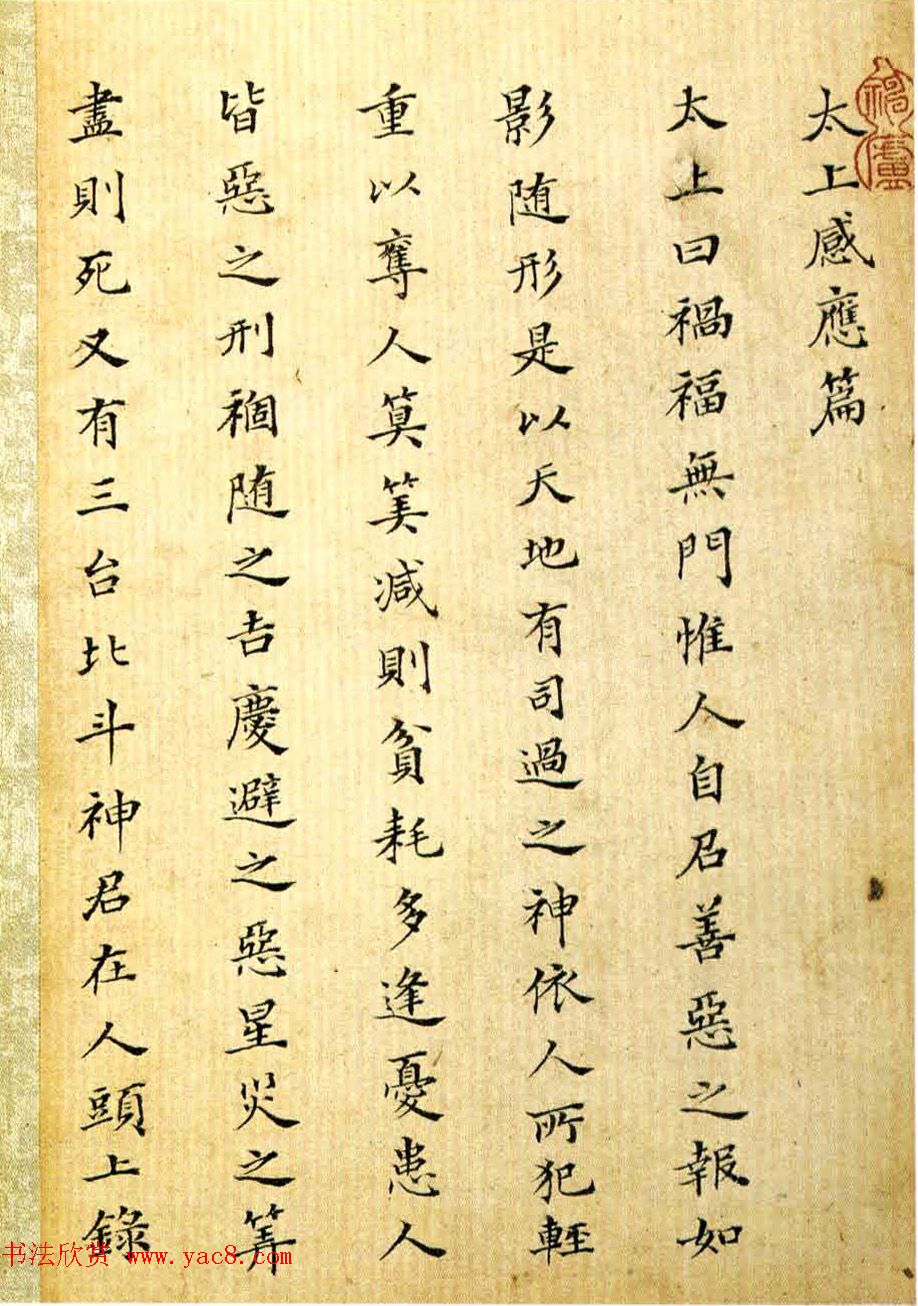 太上感應篇
太上曰禍福無門惟人自召善惡之報如
影随形是以天地有司過之神依人所犯輕
重以奪人算筭减則貧耗多逢憂患人
皆惡之刑禍随之吉慶避之惡星災之筭
盡則死又有三台北斗神君在人頭上錄
书法欣赏 www.yac8.com